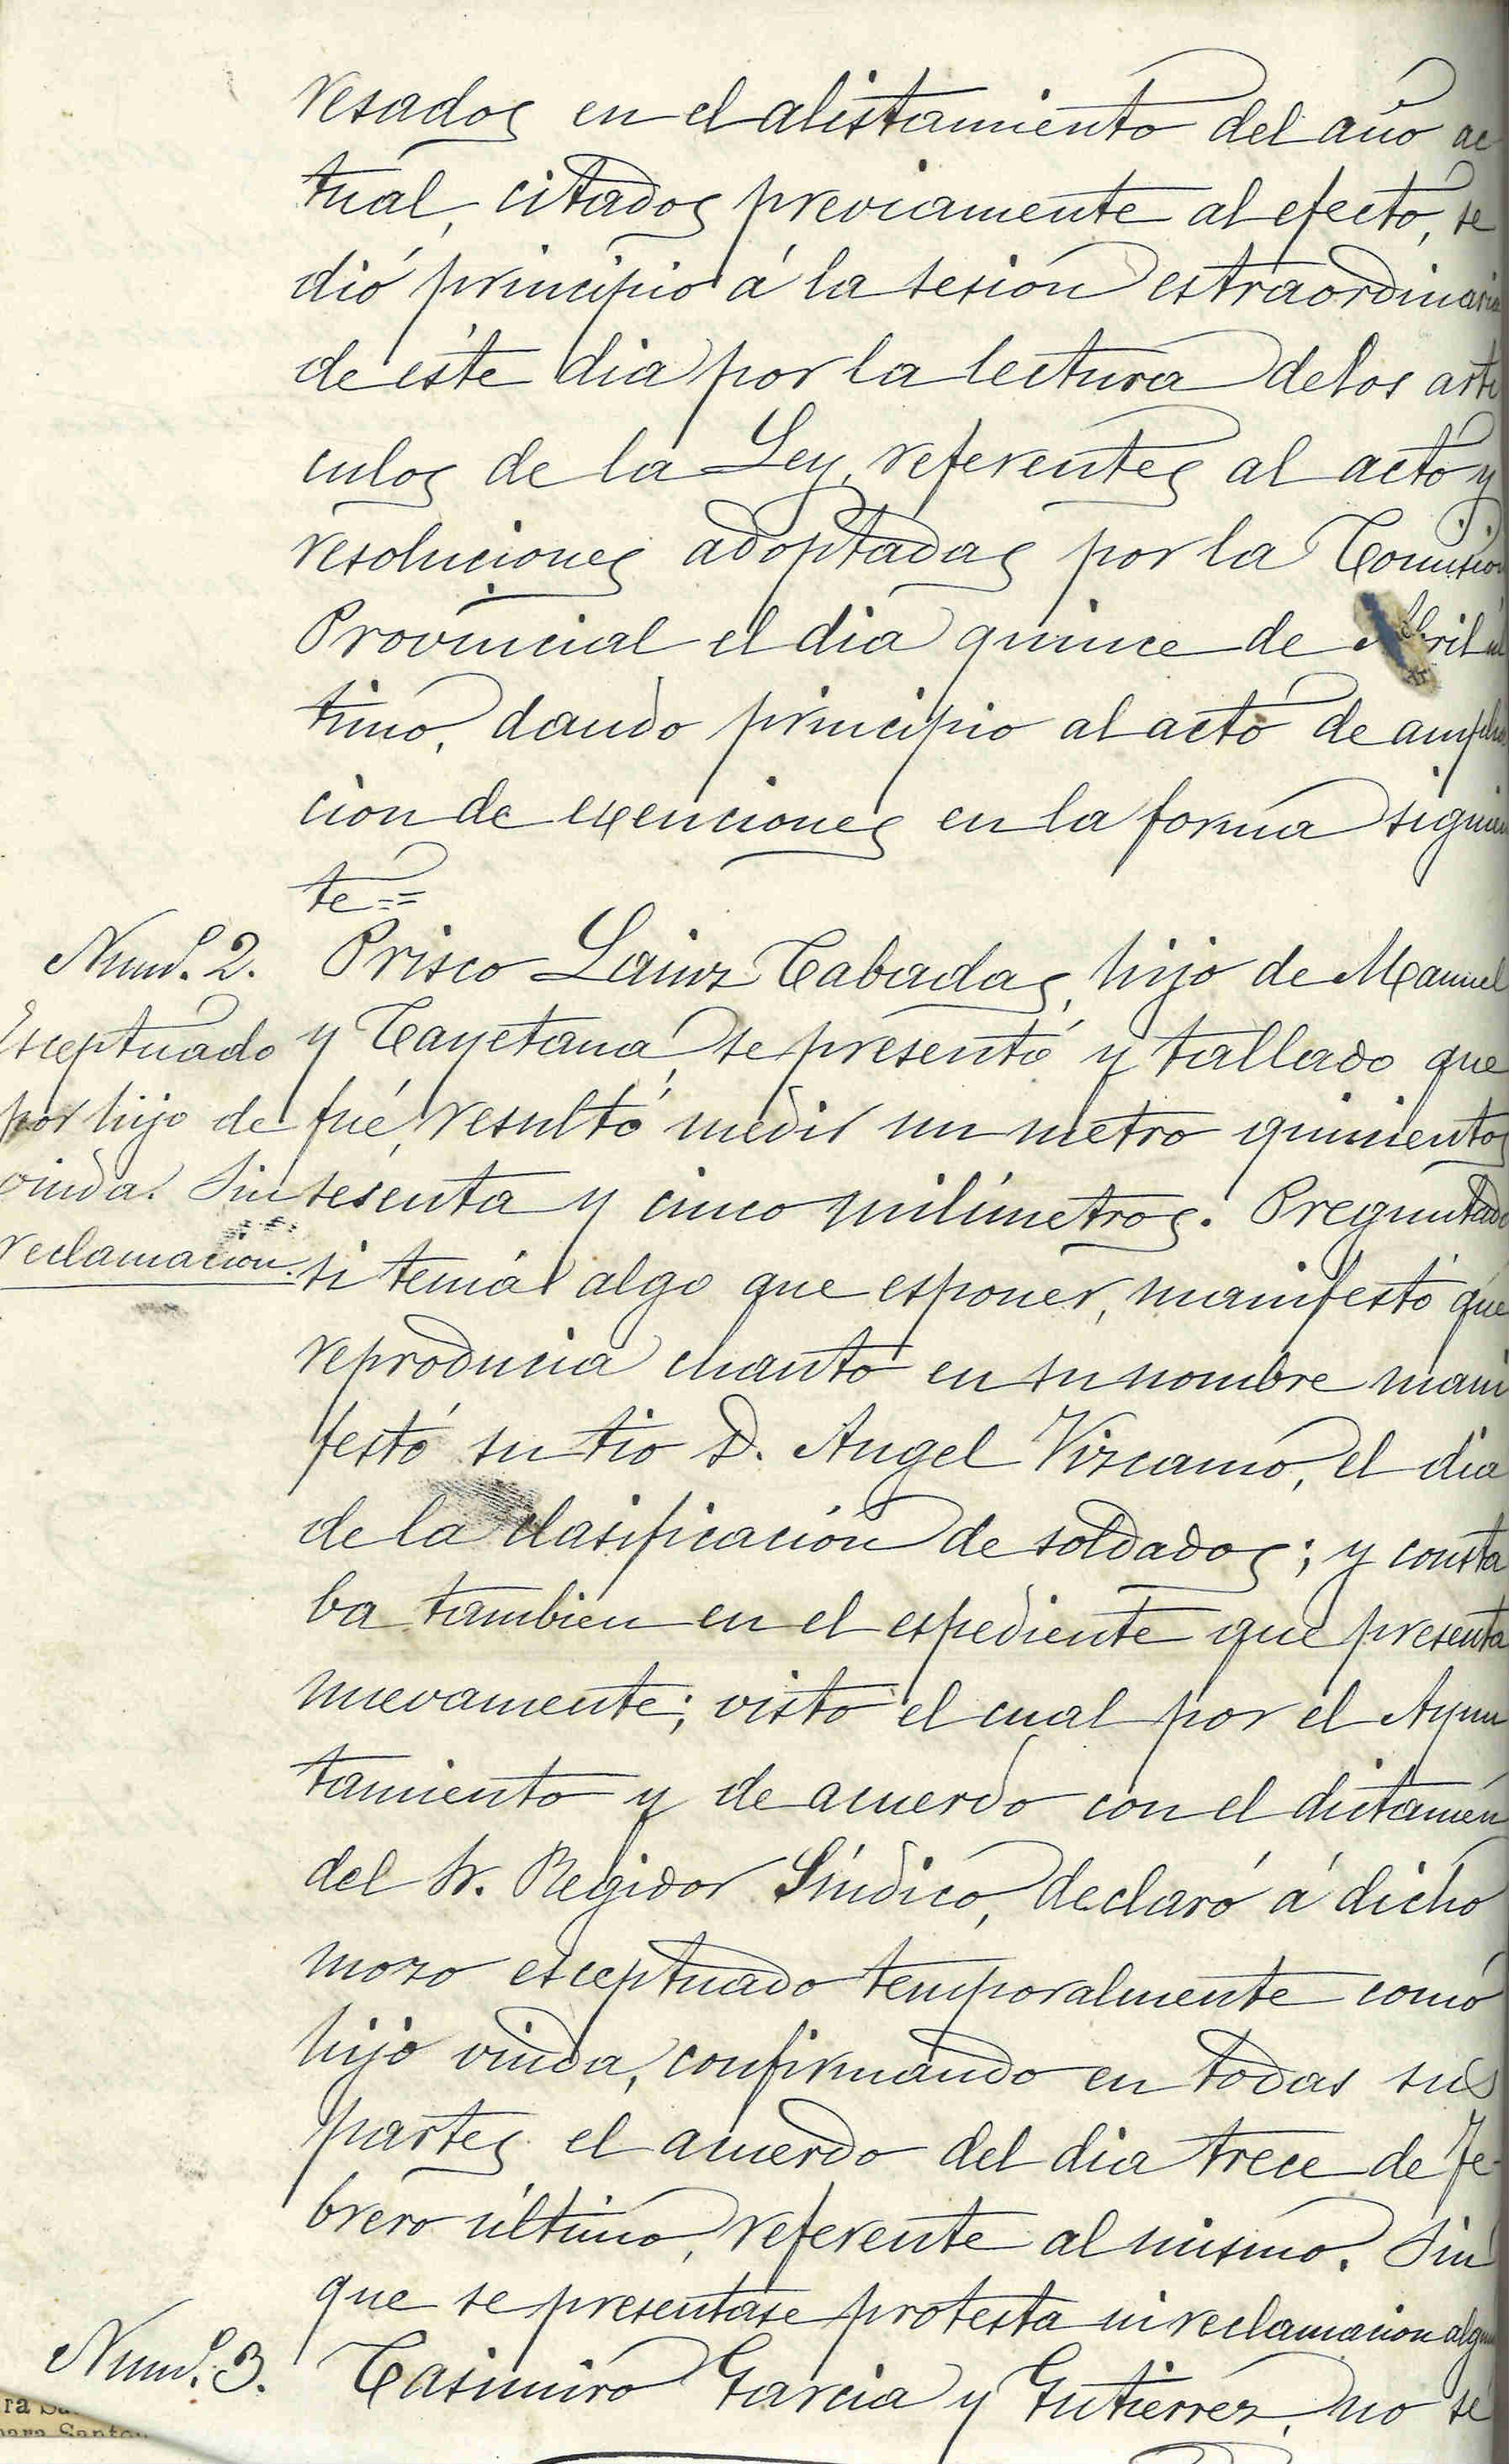 resados en el alistamiento del año ac
tual, citados previamente al efecto, se
dió principio á la sesión estraordinaria
de éste dia por la lectura de los arti
culos de la Ley, referentes al acto y
resoluciones adoptadas por la Comision
Provincial el dia quince de Abril úl
timo, dando principio al acto de amplia
cion de exenciones en la forma siguien
te==
Numº. 2.
Esceptuado
por hijo de
viuda. Sin
reclamación.
Prisco Lainz Cabadas, hijo de Manuel
y Cayetana, se presentó y tallado que
fué, resultó medir un metro quinientos
sesenta y cinco milímetros. Preguntado
si tenia algo que esponer, manifestó que
reproducia cuanto en su nombre mani
festó su tio D. Angel Vizcaino, el dia
de la clasificación de soldados; y consta
ba tambien en el espediente que presenta
nuevamente; visto el cual por el Ayun
tamiento y de acuerdo con el dictamen
del Sr. Regidor Síndico, declaró á dicho
mozo esceptuado temporalmente como
hijo viuda, confirmando en todas sus
partes el acuerdo del dia trece de Fe-
brero último, referente al mismo. Sin
que se presentase protesta ni reclamacion alguna
Numº. 3.
Casimiro Garcia y Gutierrez, no se